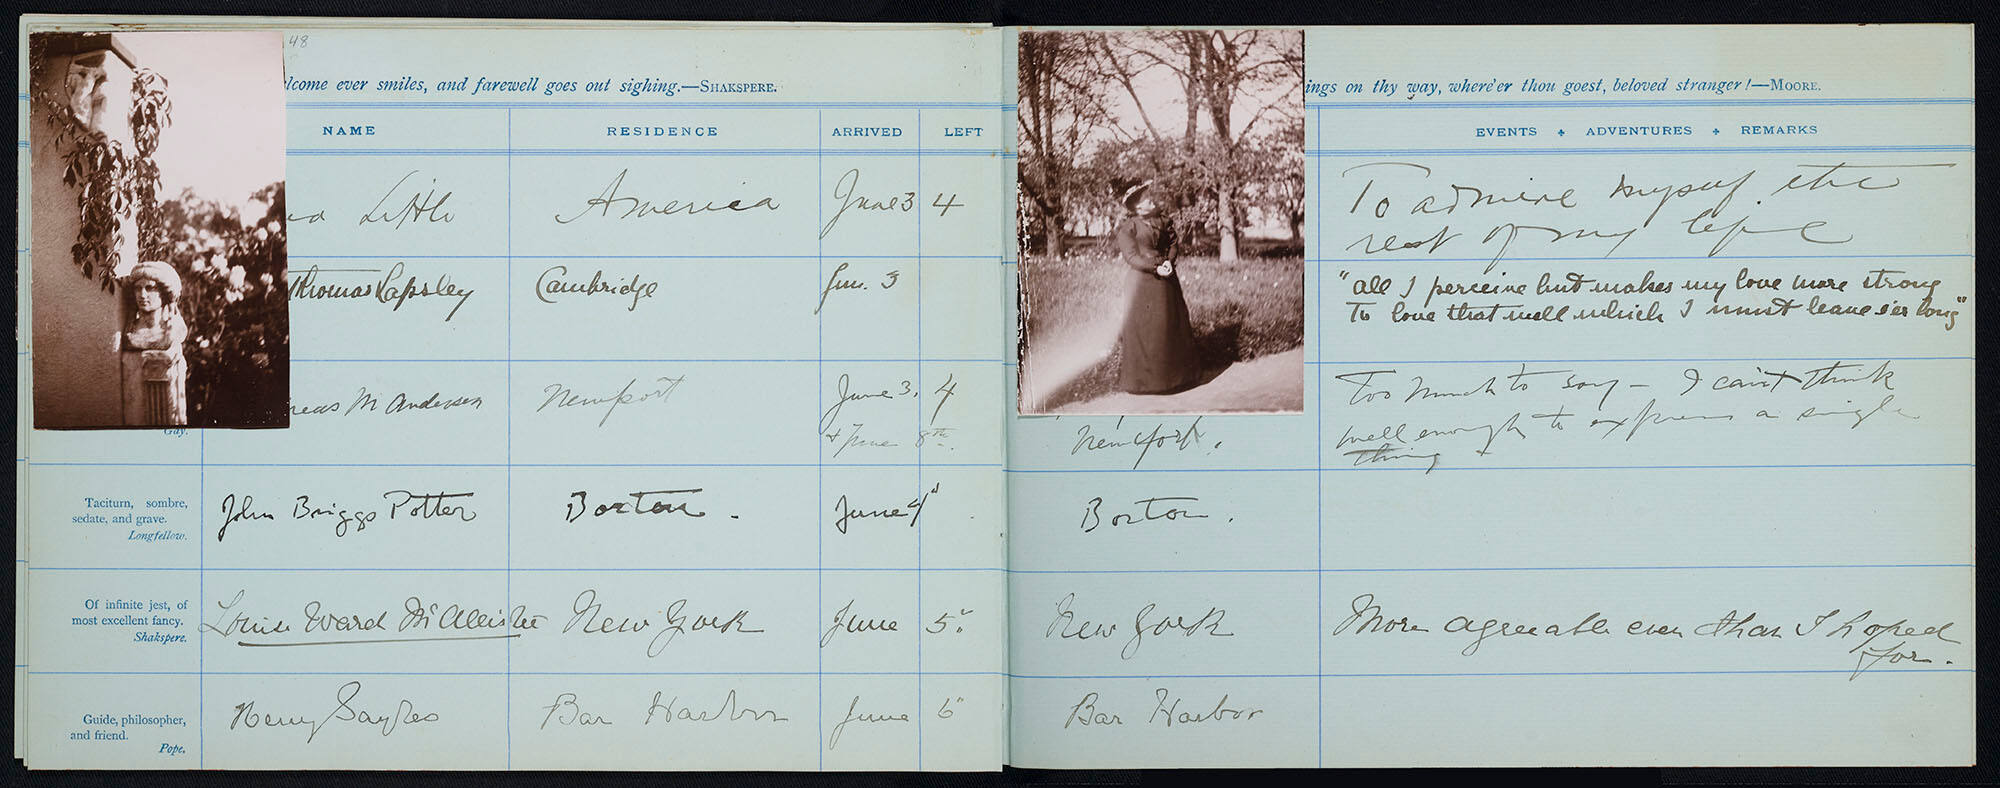 48
lcome ever smiles, and farewell goes out sighing.—SHAKSPERE.
NAME RESIDENCE ARRIVED LEFT
Little America June 3 4
Thomas Lapsley Cambridge Jun. 3
reas M Andersen Newport June 3. 4
+ June 8th.
Gay.
Taciturn, sombre,
sedate, and grave.
Longfellow.
John Briggs Potter Boston. June 4"
Of infinite jest, of
most excellent fancy.
Shakspere.
Louise Ward McAllister New York June 5"
Guide, philosopher,
and friend.
Pope.
Henry Sayles Bar Harbor June 5"
ings on thy way, where'er thou goest, beloved stranger!—MOORE.
EVENTS ✢ ADVENTURES ✢ REMARKS
To admire myself the
rest of my life
"all I perceive but makes my love more strong
To love that well which I must leave e'er long"
Too much to say – I can't think
well enough to express a single
thing
New York.
Boston.
New York More agreeable even than I hoped
for.
Bar Harbor